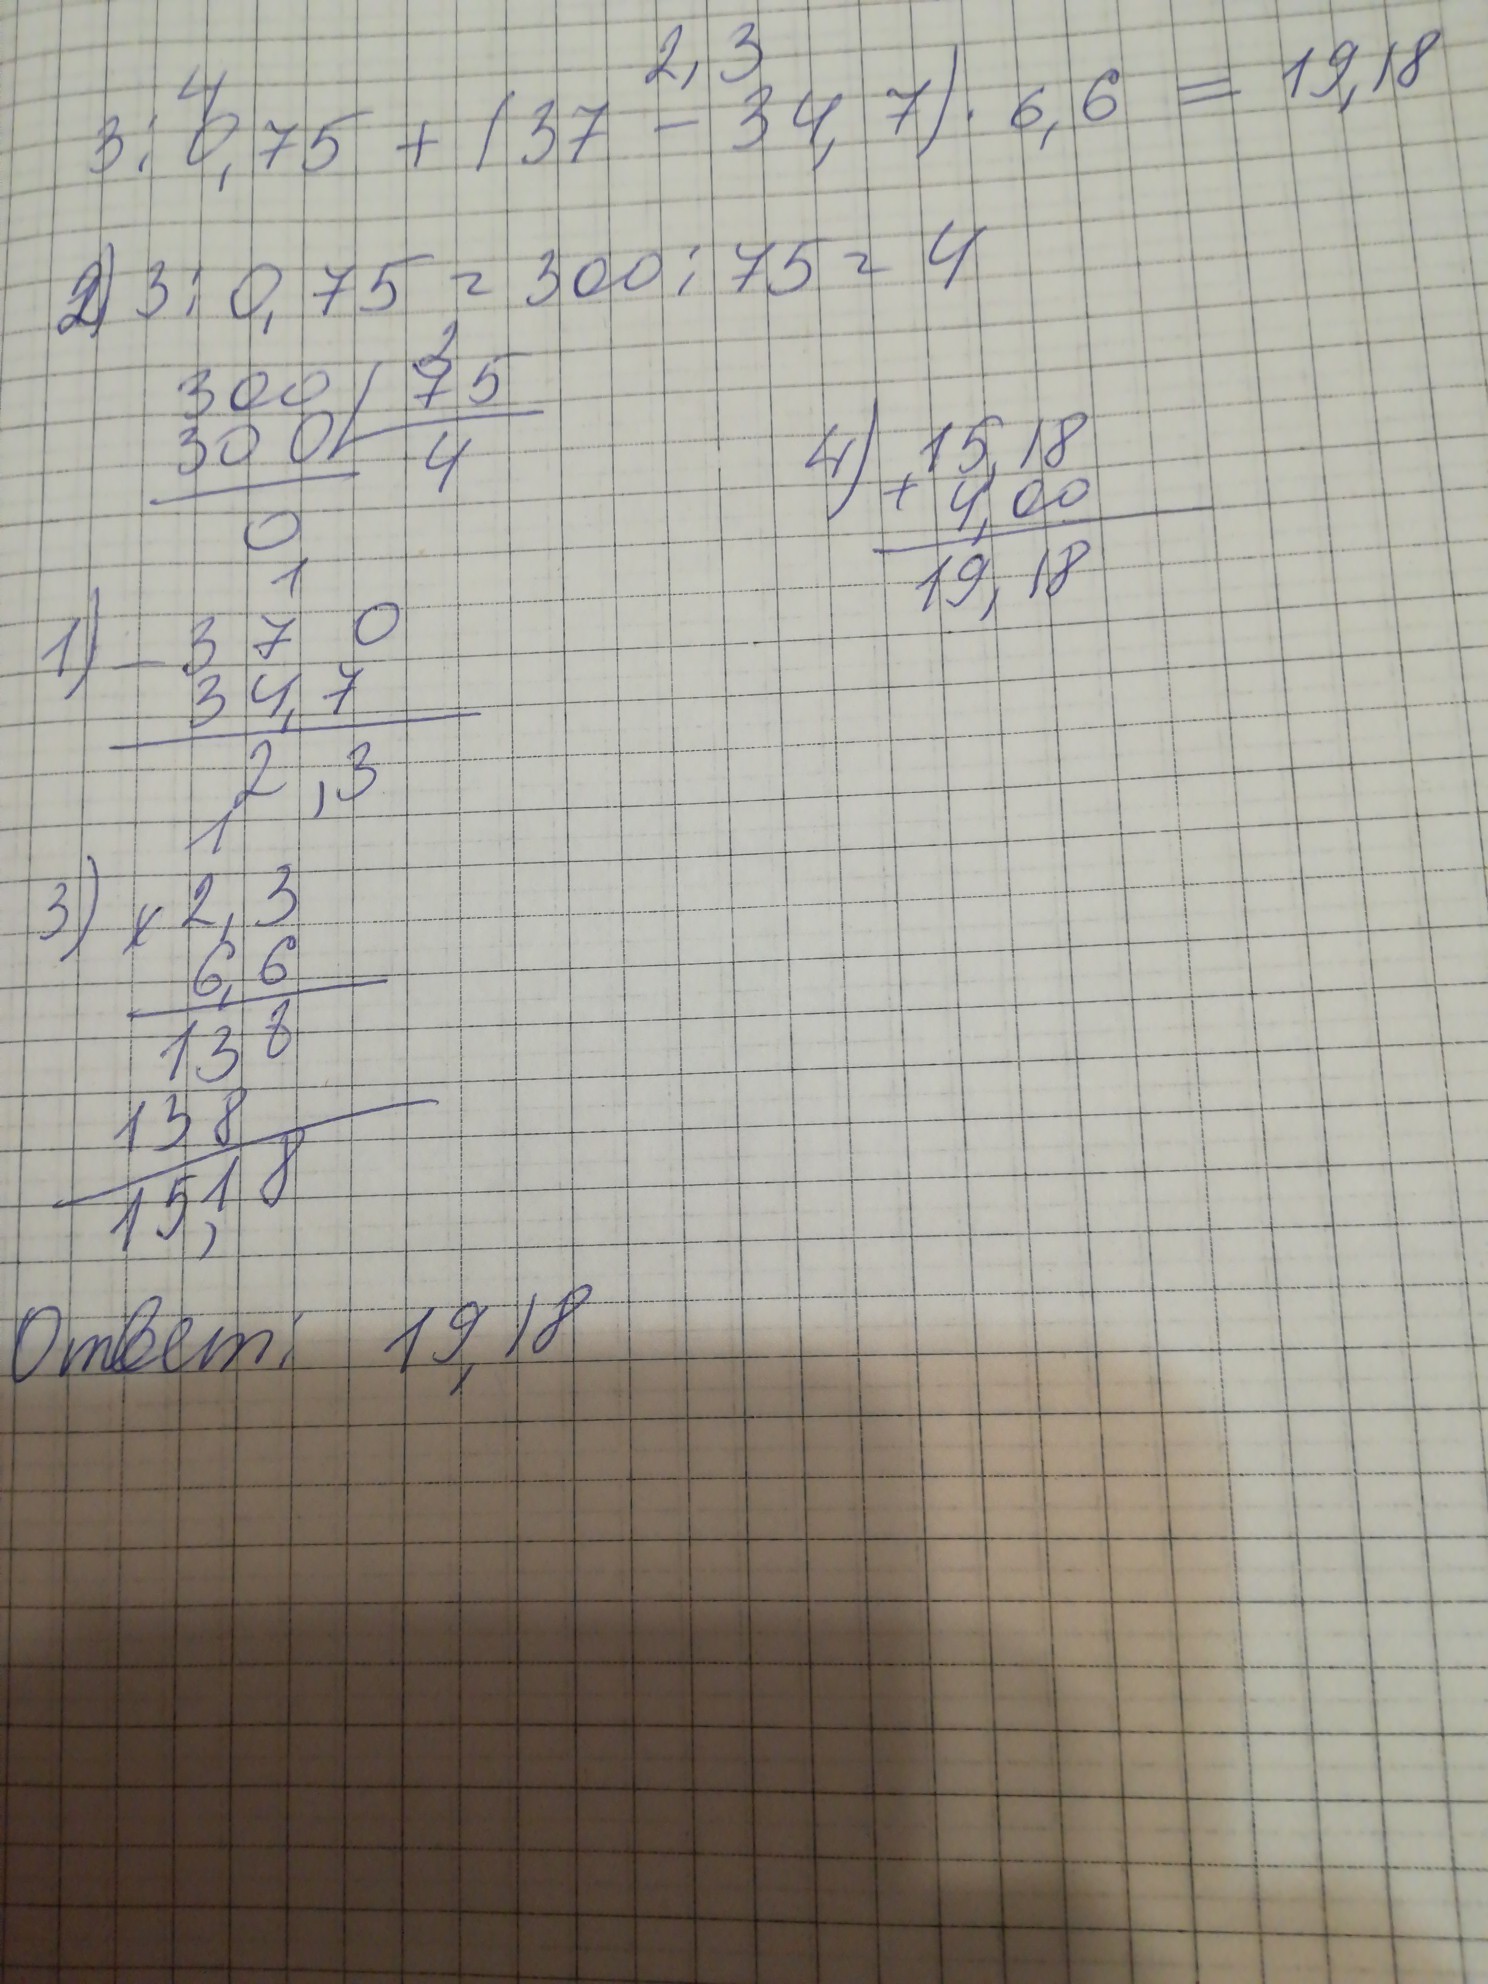 4 2,3
3:0,75 + (37 - 34,7)·6,6 = 19,18
2) 3:0,75 = 300:75 = 4
300 75
300 4
0
4) 15,18
+ 4,00
19,18
1
1) - 3 7 0
3 4,7
2,3
1
3) x 2,3
6,6
138
138
15,18
Ответ: 19,18